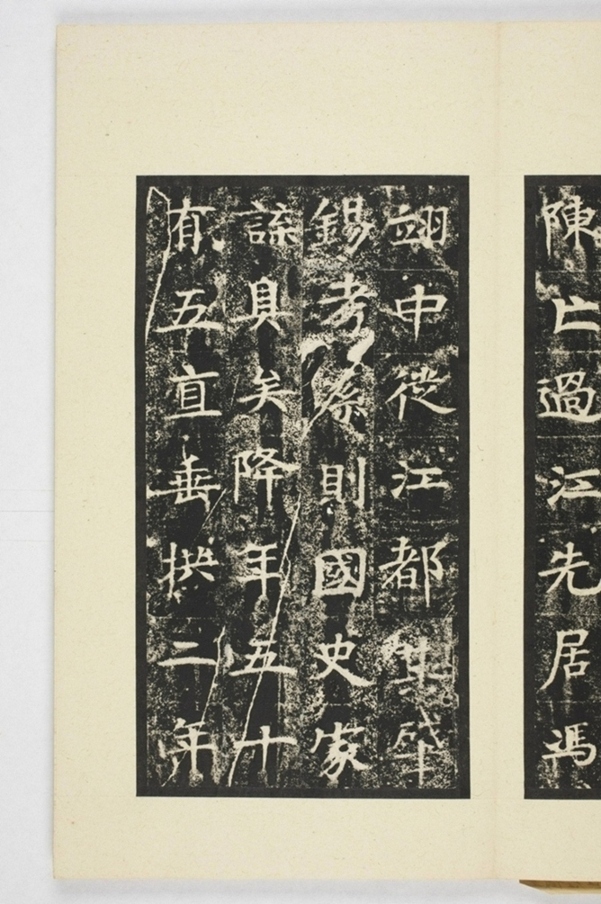 陳亡過江先居馮
翊中從江都其肇
錫考系則國史家
諜具矣降年五十
有五直垂拱二年